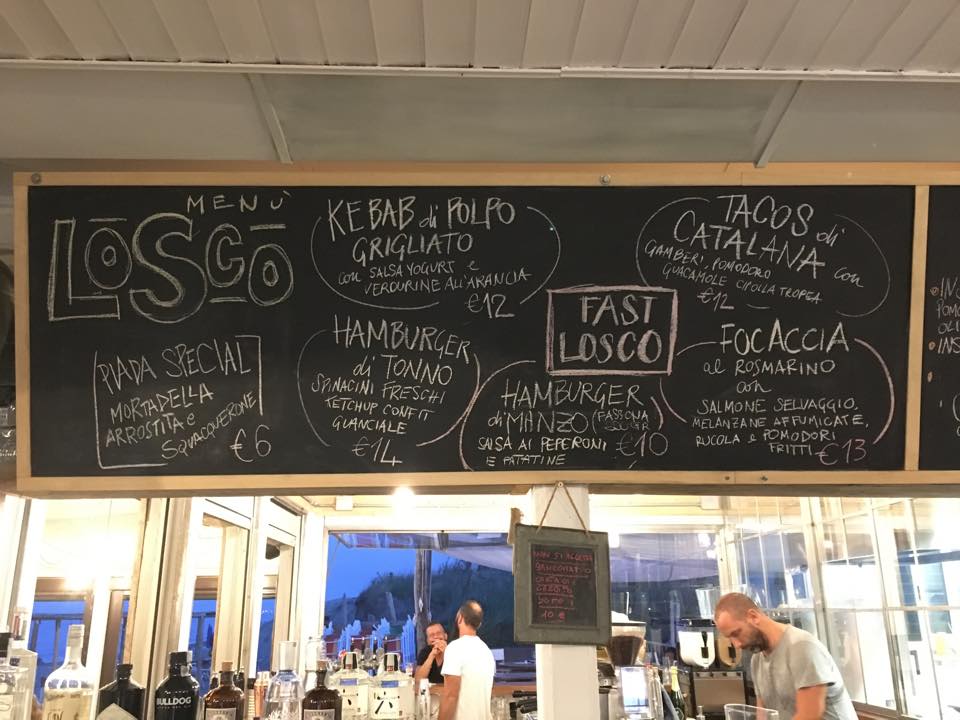 MENÙ
LOSCO
PIADA SPECIAL
MORTADELLA
ARROSTITA e
SQUACQUERONE
€6
KEBAB di POLPO
GRIGLIATO
con SALSA YOGURT e
VERDURINE ALL'ARANCIA
€12
HAMBURGER
di TONNO
SPINACINI FRESCHI
KETCHUP CONFIT
GUANCIALE
€14
FAST
LOSCO
HAMBURGER
di MANZO
SALSA AI PEPERONI
E PATATINE
€10
TACOS di
CATALANA con
GAMBERI, POMODORO
GUACAMOLE CIPOLLA TROPEA
€12
FOCACCIA
al ROSMARINO
con
SALMONE SELVAGGIO,
MELANZANE AFFUMICATE,
RUCOLA e POMODORI
FRITTI €13
NON SI ACCETTA
BANCOMAT O
CARTA DI
CREDITO
10 €
BULLDOG